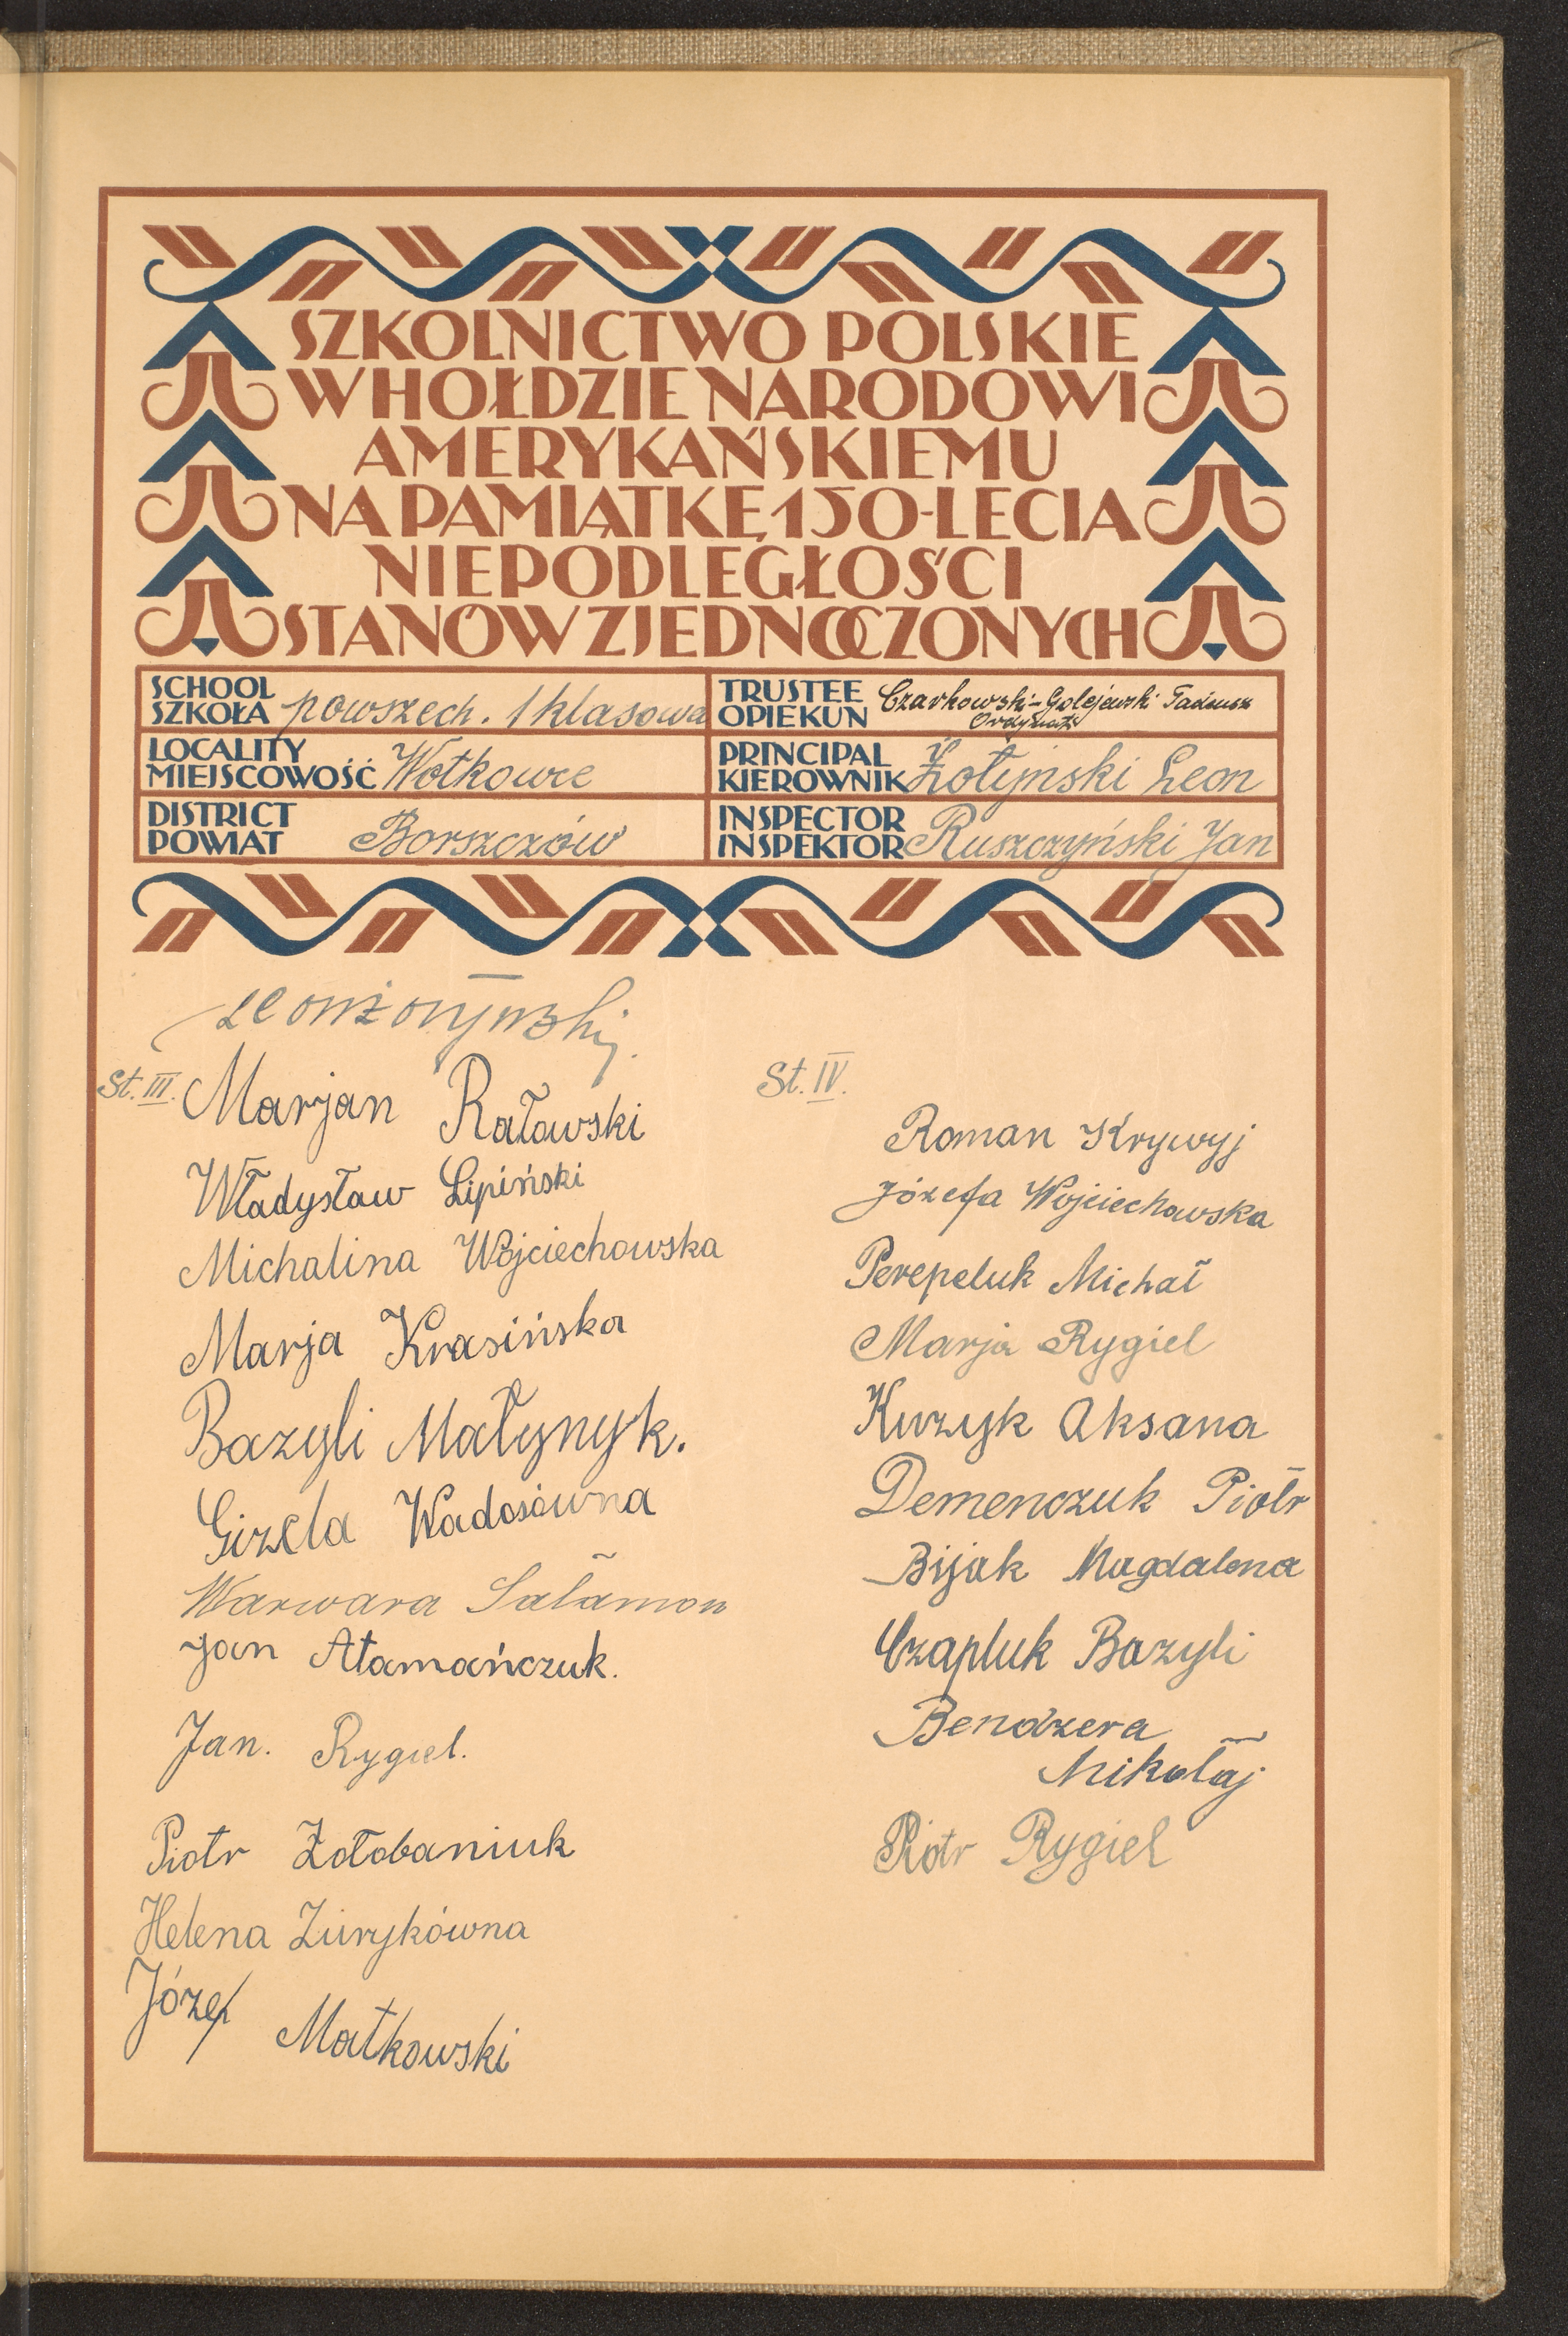 SZKOLNICTWO POLSKIE
W HOŁDZIE NARODOWI
AMERYKAŃSKIEMU
NA PAMIĄTKĘ 150-LECIA
NIEPODLEGŁOŚCI
STANÓW ZJEDNOCZONYCH
SCHOOL
SZKOŁA powszech. 1 klasowa
TRUSTEE
OPIEKUN Czarkowski-Golejewski Tadeusz
Ordynat
LOCALITY
MIEJSCOWOŚĆ Wołkowce
PRINCIPAL
KIEROWNIK Żołyński Leon
DISTRICT
POWIAT Borszczów
INSPECTOR
INSPEKTOR Ruszczyński Jan
Leon Żołyński
St. III.
Marjan Ratowski
Władysław Lipiński
Michalina Wojciechowska
Marja Krasińska
Bazyli Małynyk.
Gizela Wadosówna
Warwara Sałamon
Jan Atamańczuk.
Jan. Rygiel.
Piotr Żołobaniuk
Helena Żurykówna
Józef Małkowski
St. IV.
Roman Krywyj
Józefa Wojciechowska
Perepeluk Michał
Marja Rygiel
Kuzyk Aksana
Demenczuk Piotr
Bijak Magdalena
Czapluk Bazyli
Bendzera
Mikołaj
Piotr Rygiel